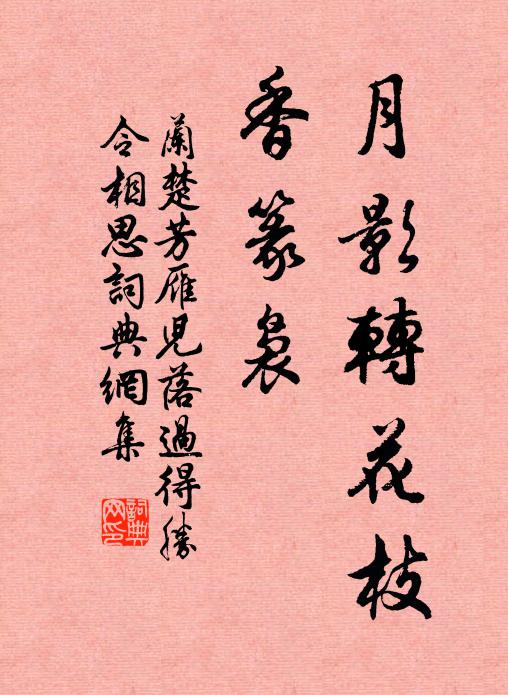 月影轉花枝
香篆裊
蘭楚芳雁兒落過得勝
令相思詞典網集
詞典
网印